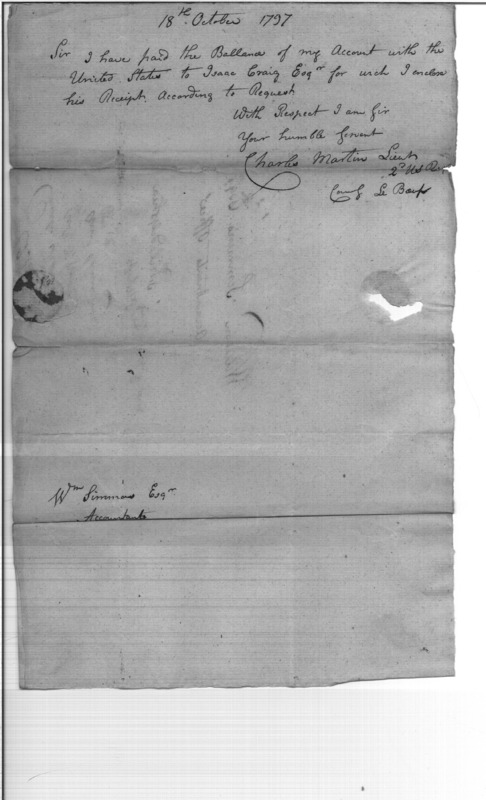 18th October 1797
Sir I have paid the Ballance of my Account with the
United States to Isaac Craig Esqr for wich I enclose
his Receipt According to Request
With Respect I am Sir
Your humble Servent
Charles Martin Lieut
2d US R
Comg Le Boeuf
Wm Simmons Esqr
Accountant